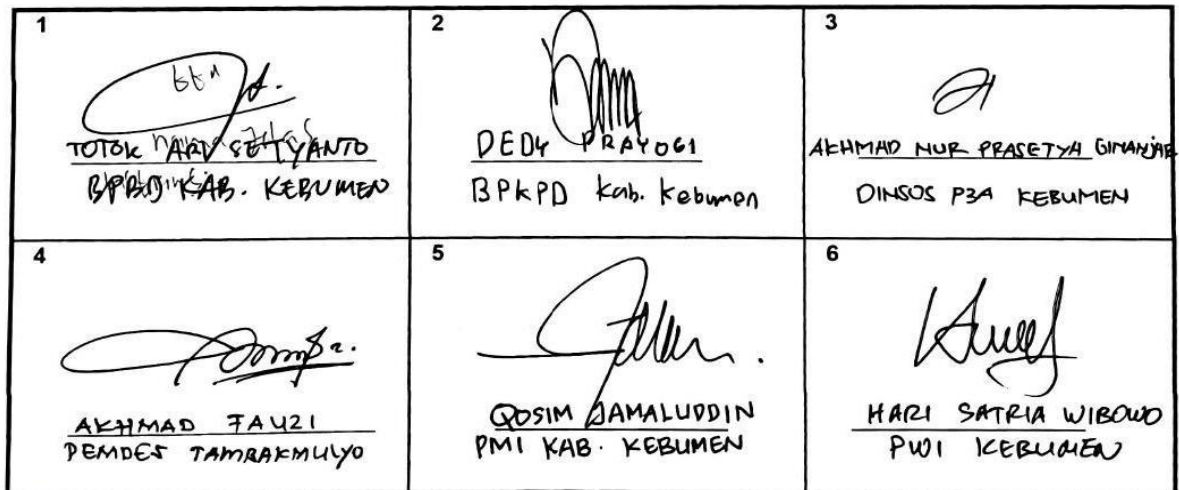 1
ttd
TOTOK ARI SETYANTO
BPBD KAB. KEBUMEN
2
DEDY PRAYOGI
BPKPD Kab. Kebumen
3
AKHMAD NUR PRASETYA GINANJAR
DINSOS P3A KEBUMEN
4
AKHMAD FAUZI
PEMDES TAMBAKMULYO
5
QOSIM JAMALUDDIN
PMI KAB. KEBUMEN
6
HARI SATRIA WIBOWO
PWI KEBUMEN